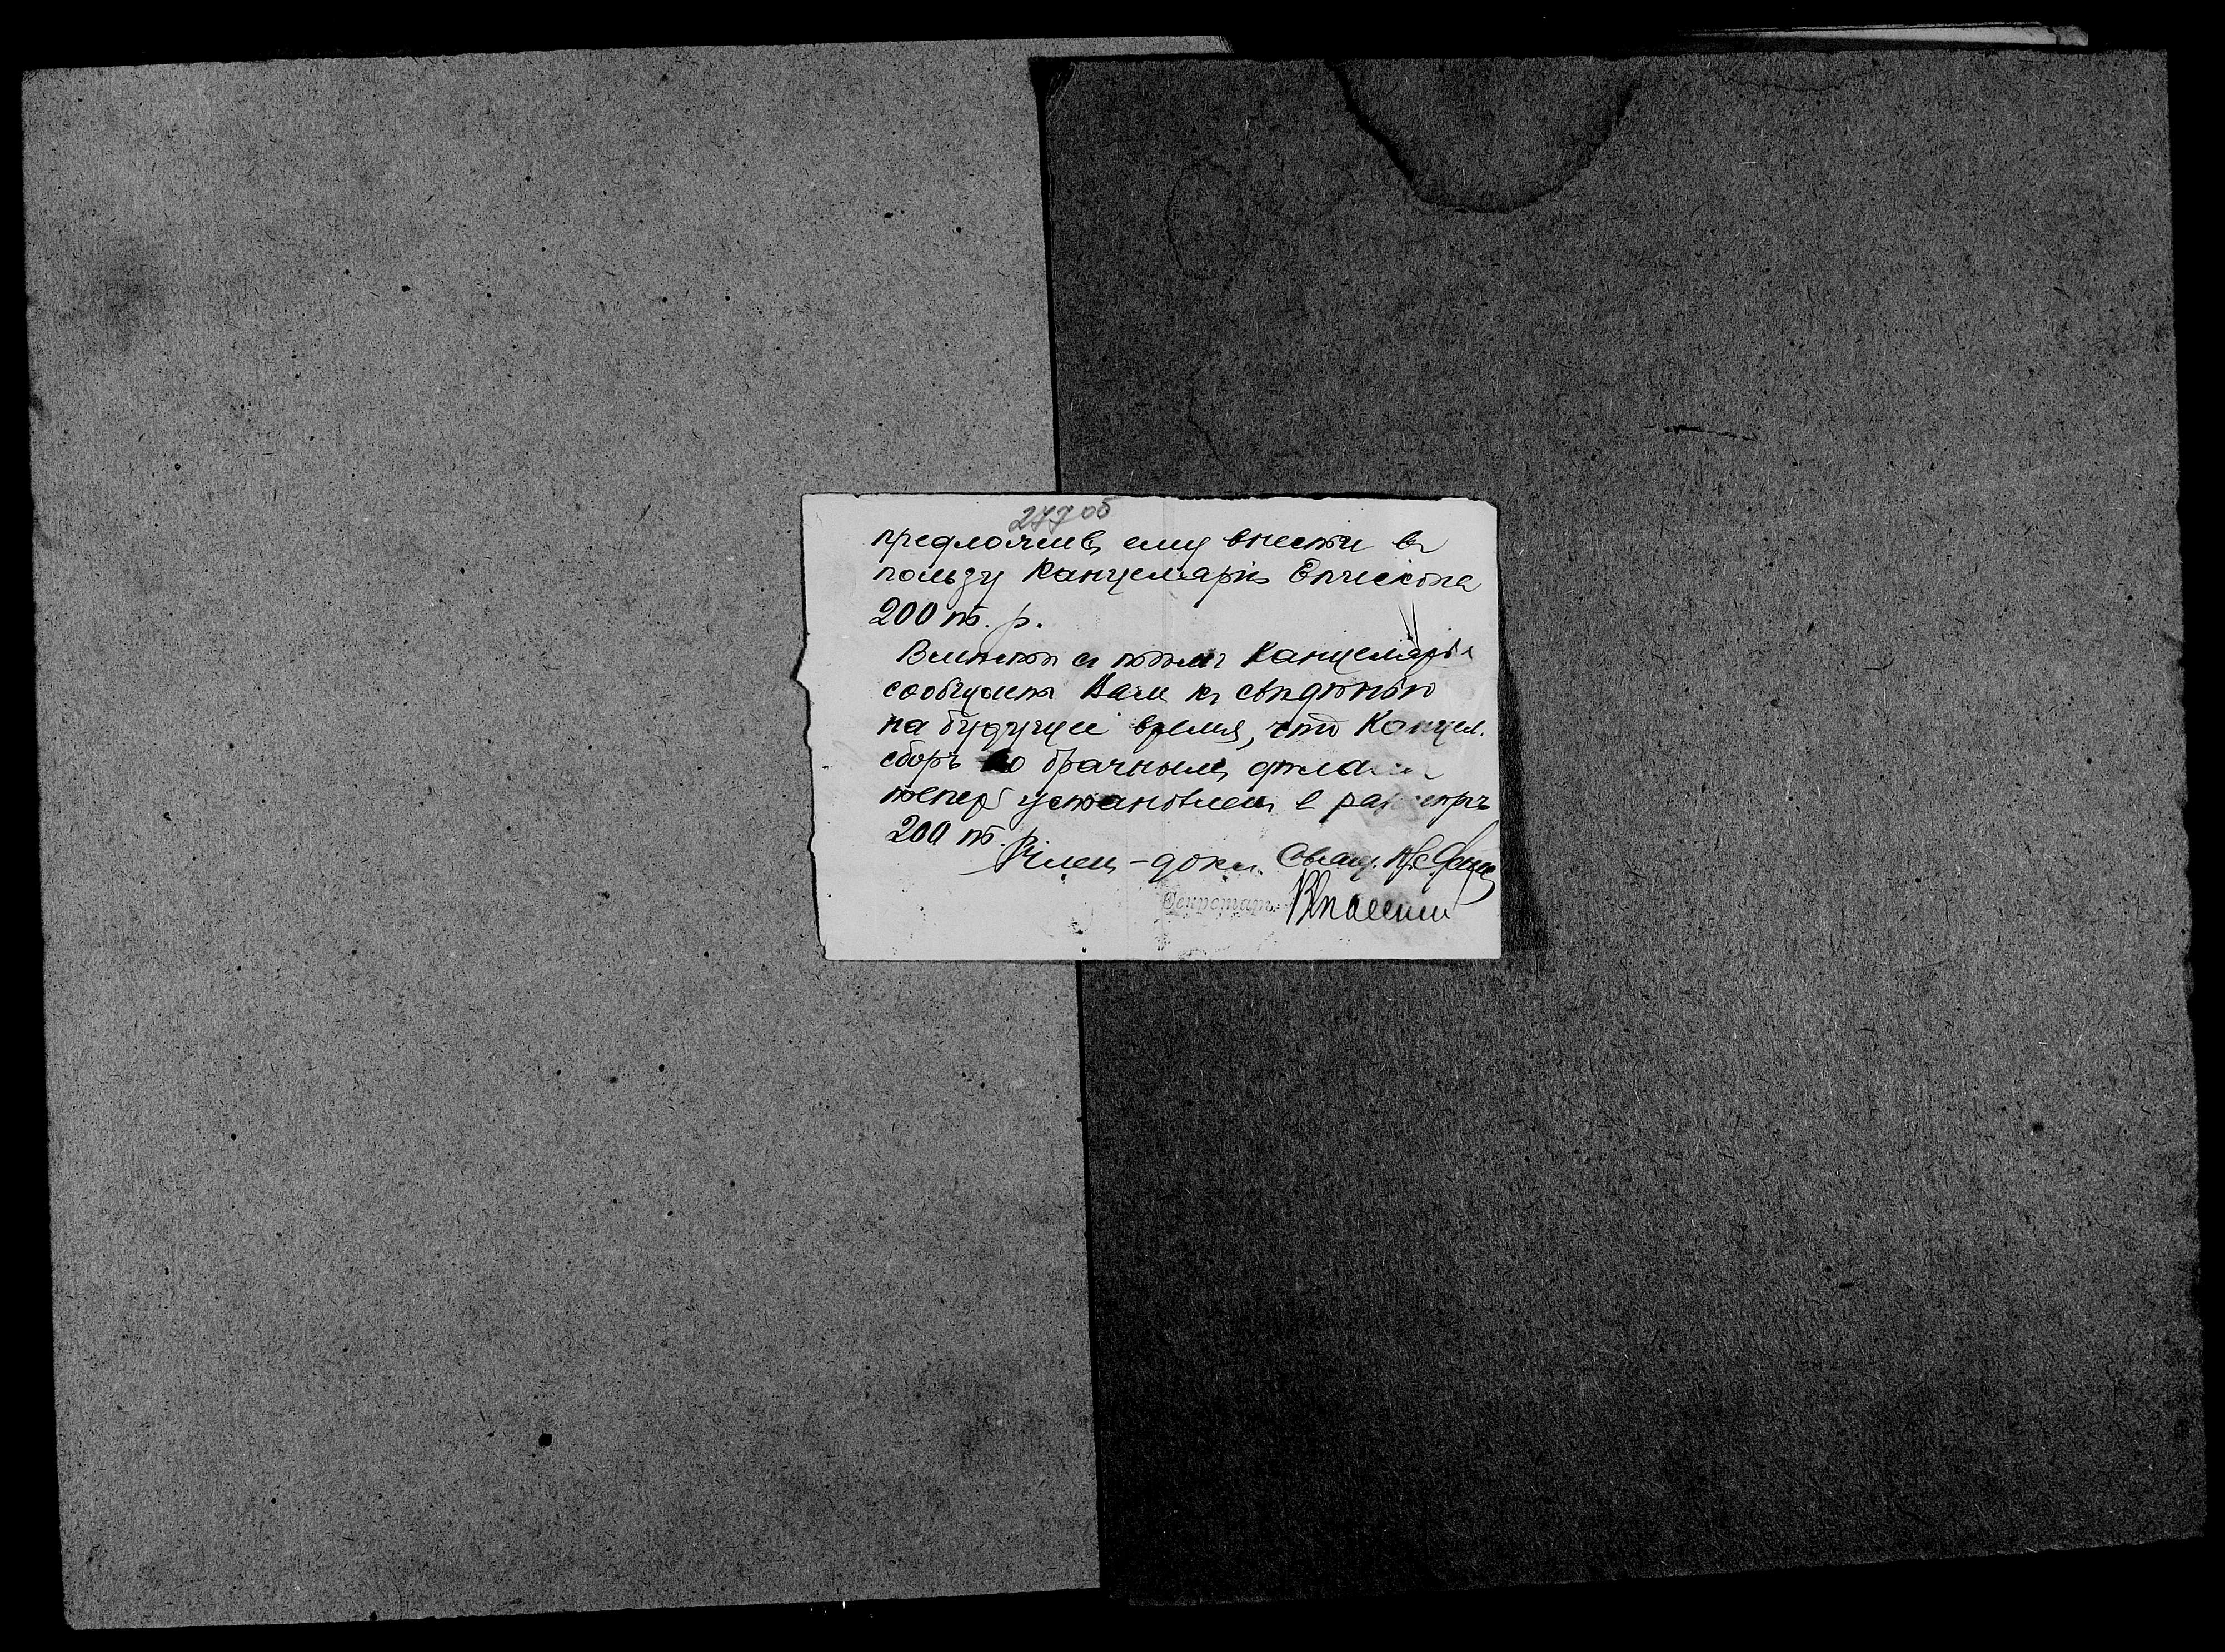 277 об
предложив ему внести въ
пользу Канцеляріи Епископа
200 т. р.
Вместе с тѣмъ Канцелярія
сообщает Вам к свѣдѣнію
на будущее время, что Канцел.
сборъ по брачным дѣлам
теперь установлен в размѣрѣ
200 т.
Член-докл. Свящ.
Секретарь